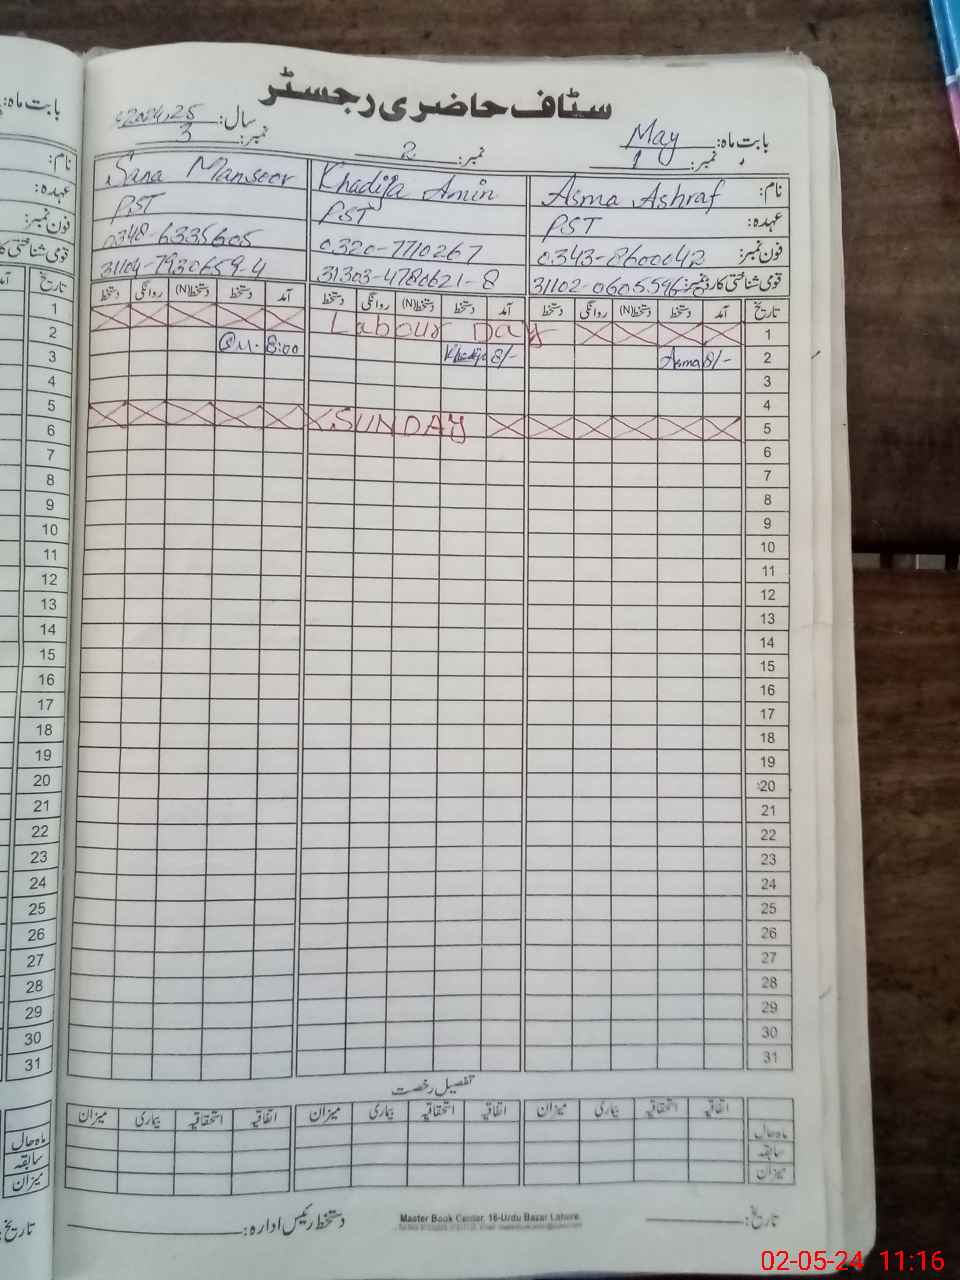 سٹاف حاضری رجسٹر
بابت ماہ: May سال: 2024,25
نمبر: 1 نمبر: 2 نمبر: 3
نام: Asma Ashraf Khadija Amin Sana Manseer
عہدہ: PST PST PST
فون نمبر: 0343-8600042 0320-7710267 0348-6335605
قومی شناختی کارڈ نمبر: 31102-0605596 31303-4780621-8 31104-7930659-4
تاریخ آمد دستخط دستخط(N) روانگی دستخط آمد دستخط دستخط(N) روانگی دستخط آمد دستخط دستخط(N) روانگی دستخط
1 Labour Day
2 8/- Asma 8/- Khadija 8:00
3
4
5 SUNDAY
6
7
8
9
10
11
12
13
14
15
16
17
18
19
20
21
22
23
24
25
26
27
28
29
30
31
تفصیل رخصت
اتفاقیہ استحقاقیہ بیماری میزان اتفاقیہ استحقاقیہ بیماری میزان اتفاقیہ استحقاقیہ بیماری میزان
ماہ حال
سابقہ
میزان
تاریخ: دستخط رئیس ادارہ:
Master Book Center, 16-Urdu Bazar Lahore.
بابت ماہ:
نام:
عہدہ:
فون نمبر:
قومی شناختی کا
تاریخ
1
2
3
4
5
6
7
8
9
10
11
12
13
14
15
16
17
18
19
20
21
22
23
24
25
26
27
28
29
30
31
ماہ حال
سابقہ
میزان
تاریخ:
02-05-24 11:16